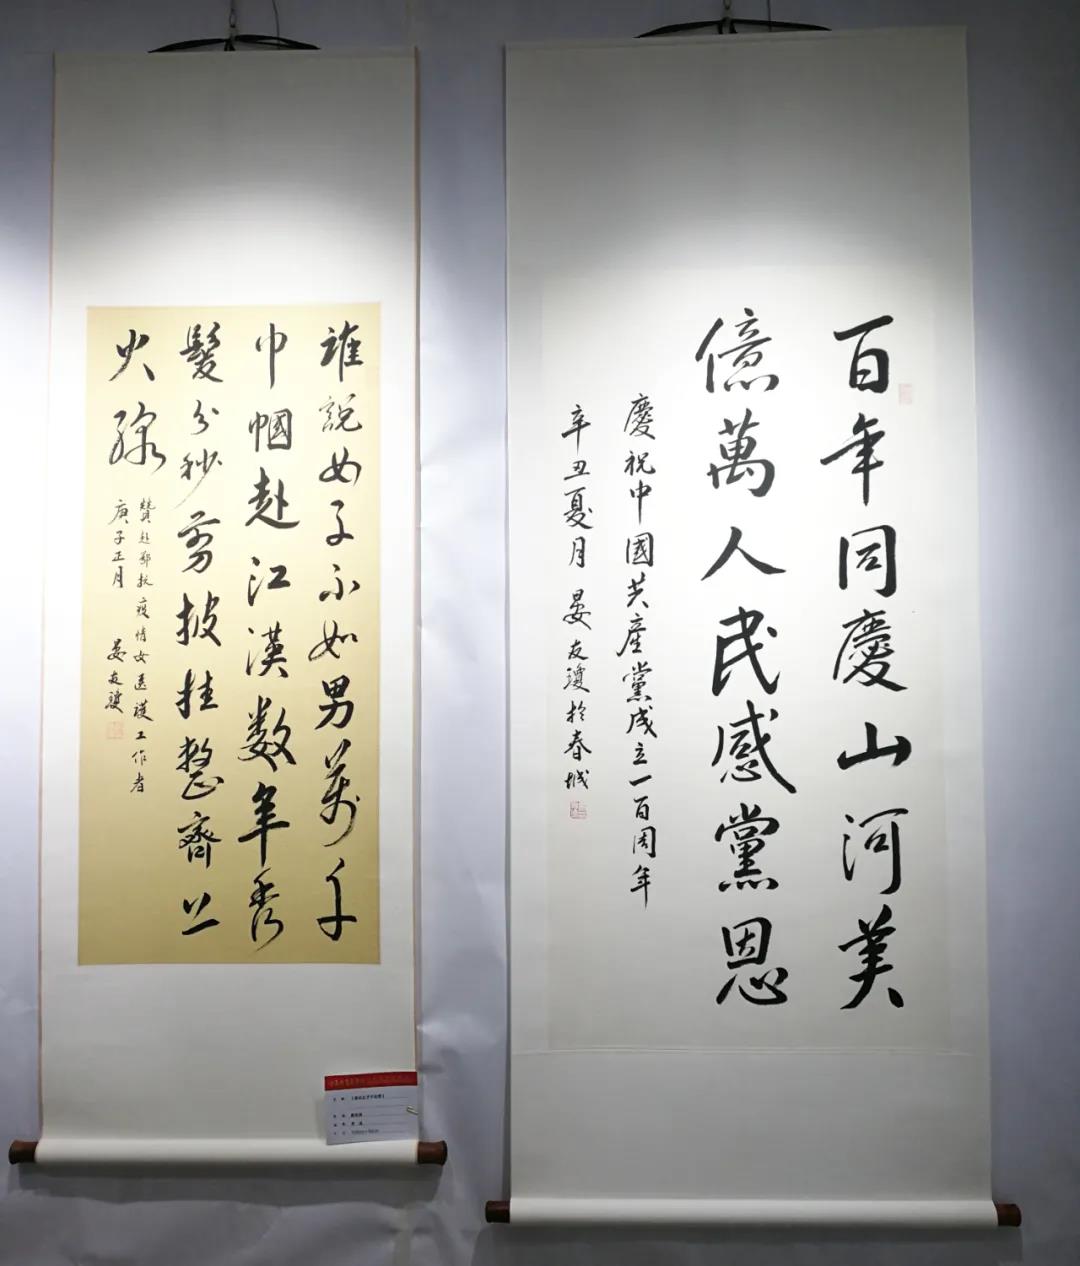 百年同慶山河美
億萬人民感黨恩
慶祝中國共産黨成立一百周年
辛丑夏月 晏友瓊於春城
誰説女子不如男萬千
巾幗赴江漢数年秀
髮分秒剪披挂整齊上
火線
贊赴鄂抗疫情女医護工作者
庚子正月 晏友瓊